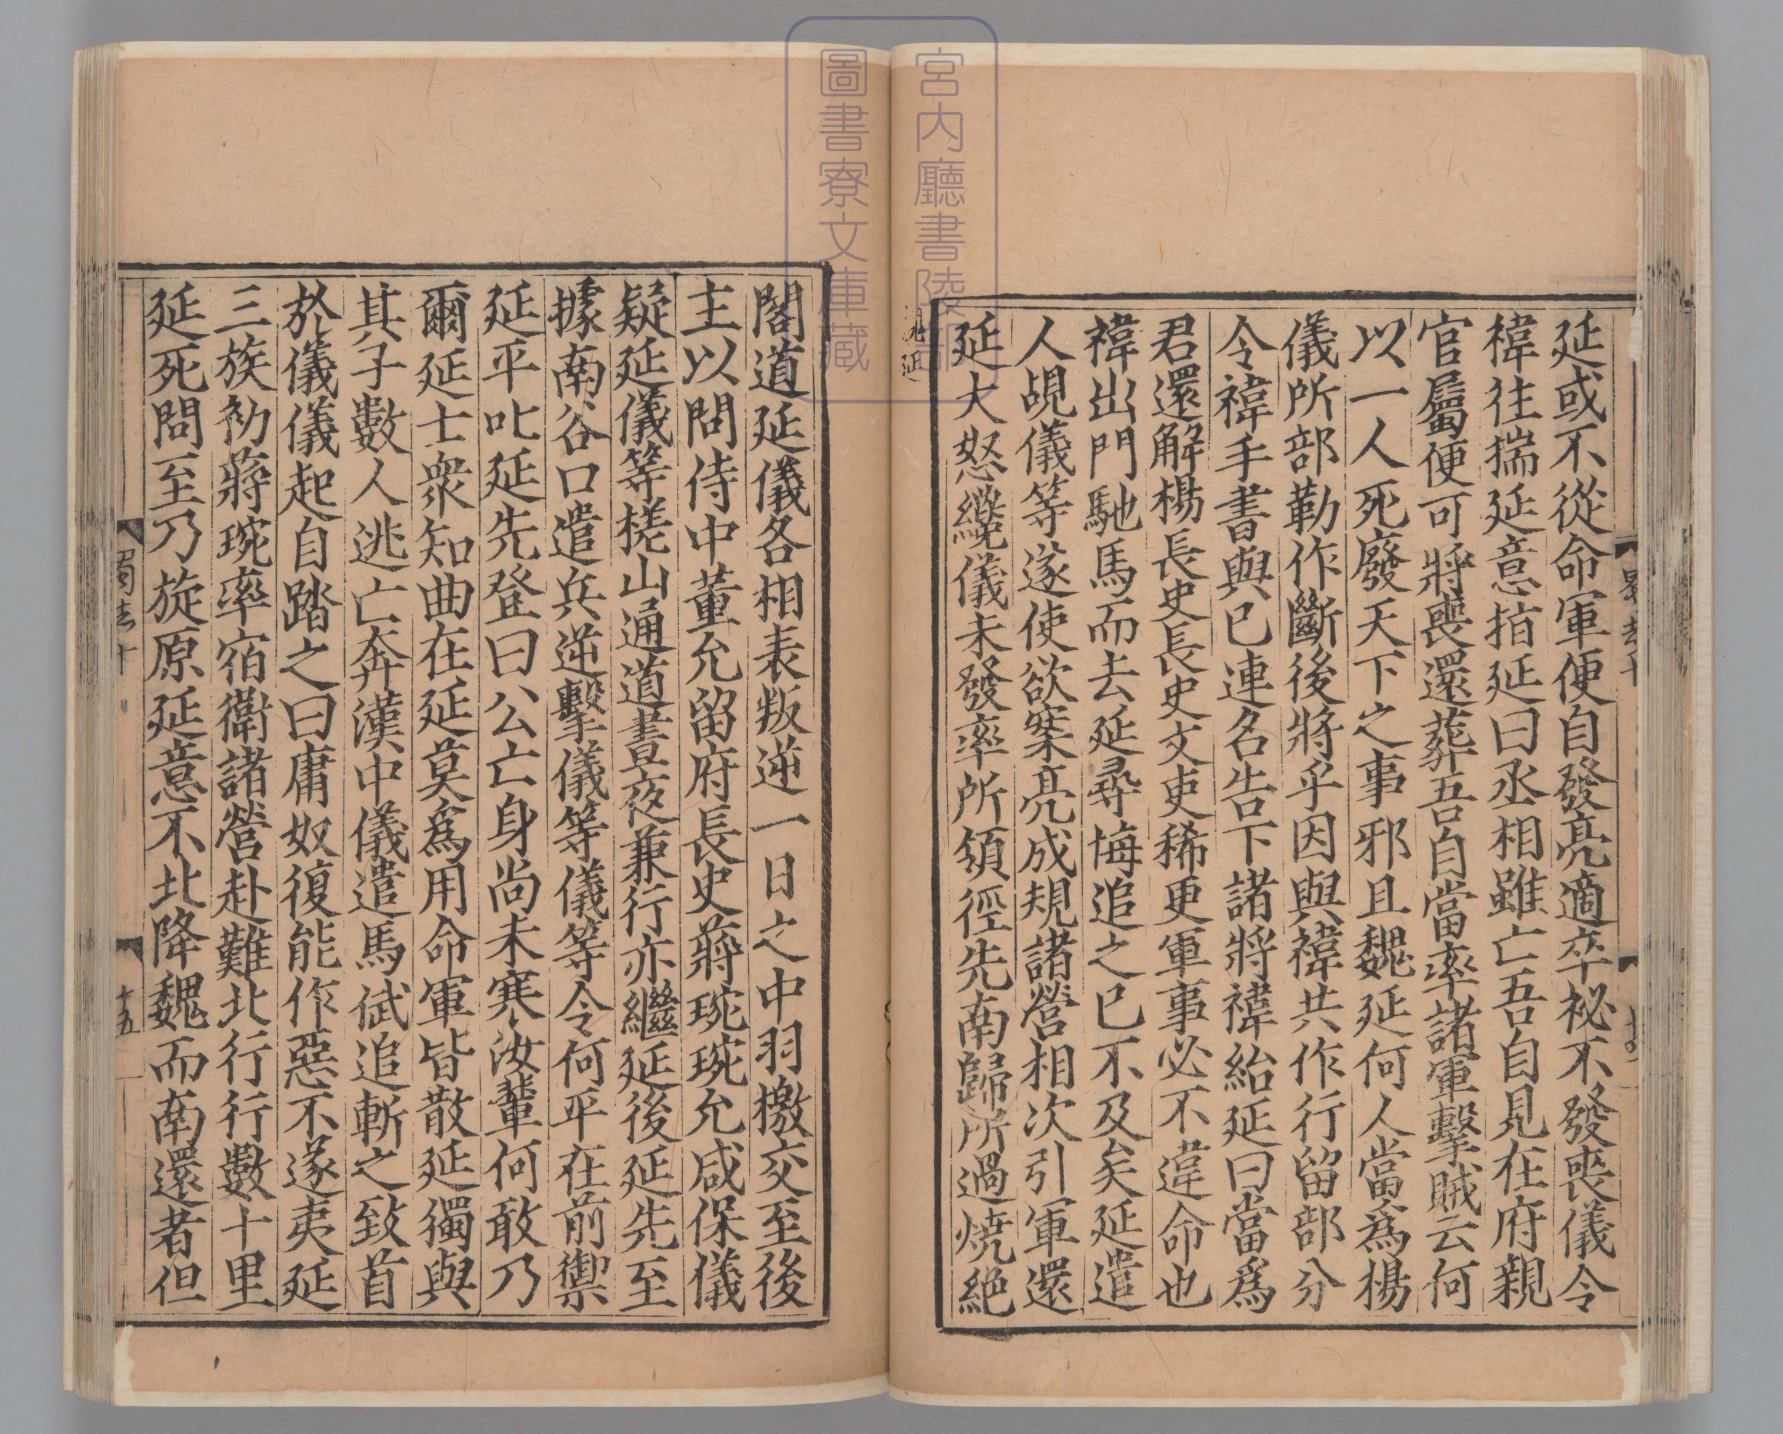 延或不從命軍便自發亮適卒祕不發喪儀令
禕往揣延意指延曰丞相雖亡吾自見在府親
官屬便可將喪還葬吾自當率諸軍擊賊云何
以一人死廢天下之事邪且魏延何人當為楊
儀所部勒作斷後將乎因與禕共作行留部分
令禕手書與已連名告下諸將禕紿延曰當爲
君還解楊長史長史文吏稀更軍事必不違命也
禕出門馳馬而去延尋悔追之已不及矣延遣
人覘儀等遂使欲案亮成規諸營相次引軍還
延大怒纔儀未發率所領徑先南歸所過燒絶
魏延
閣道延儀各相表叛逆一日之中羽檄交至後
主以問侍中董允留府長史蔣琬琬允咸保儀
疑延儀等槎山通道晝夜兼行亦繼延後延先至
據南谷口遣兵逆擊儀等儀等令何平在前禦
延平叱延先登曰公亡身尚未寒汝輩何敢乃
爾延士衆知曲在延莫爲用命軍皆散延獨與
其子數人逃亡奔漢中儀遣馬岱追斬之致首
於儀儀起自踏之曰庸奴復能作惡不遂夷延
三族初蔣琬率宿衛諸營赴難北行行數十里
延死問至乃旋原延意不北降魏而南還者但
十五
宮内廳書陵部
圖書寮文庫藏